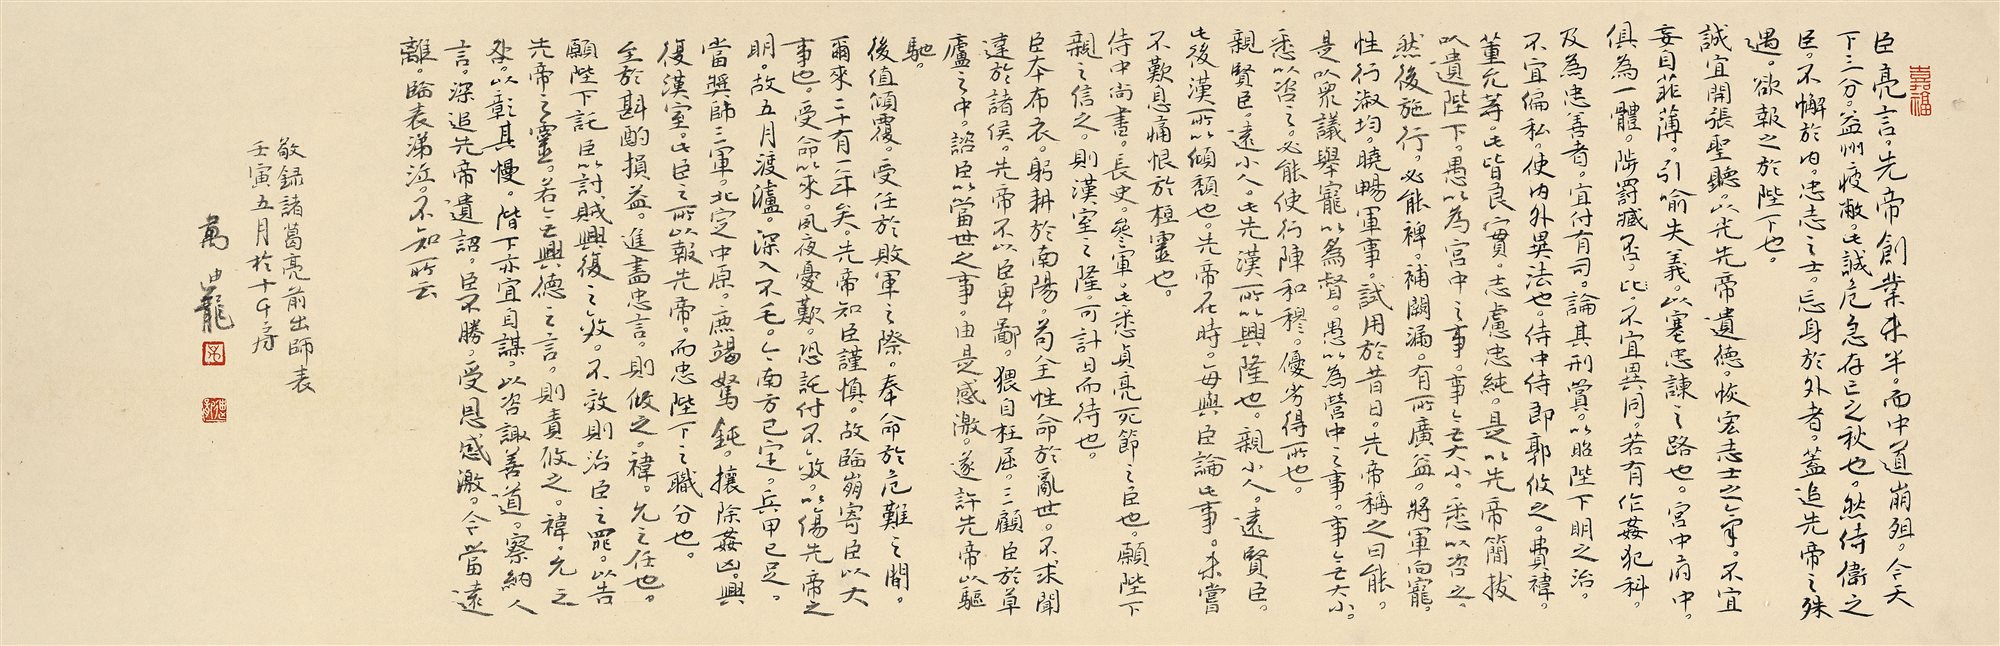 嘉福
臣亮言。先帝創業未半。而中道崩殂。今天
下三分。益州疲敝。此誠危急存亡之秋也。然侍衛之
臣。不懈於內。忠志之士。忘身於外者。蓋追先帝之殊
遇。欲報之於陛下也。
誠宜開張聖聽。以光先帝遺德。恢宏志士之氣。不宜
妄自菲薄。引喻失義。以塞忠諫之路也。宮中府中。
俱為一體。陟罰臧否。不宜異同。若有作姦犯科。
及為忠善者。宜付有司。論其刑賞。以昭陛下明之治。
不宜偏私。使內外異法也。侍中侍郎郭攸之。費禕。
董允等。此皆良實。志慮忠純。是以先帝簡拔
以遺陛下。愚以為宮中之事。事無大小。悉以咨之。
然後施行。必能裨補闕漏。有所廣益。將軍向寵。
性行淑均。曉暢軍事。試用於昔日。先帝稱之曰能。
是以眾議舉寵以為督。愚以為營中之事。事無大小。
悉以咨之。必能使行陣和穆。優劣得所也。
親賢臣。遠小人。此先漢所以興隆也。親小人。遠賢臣。
此後漢所以傾頹也。先帝在時。每與臣論此事。未嘗
不歎息痛恨於桓靈也。
侍中尚書。長史。參軍。此悉貞亮死節之臣也。願陛下
親之信之。則漢室之隆。可計日而待也。
臣本布衣。躬耕於南陽。苟全性命於亂世。不求聞
達於諸侯。先帝不以臣卑鄙。猥自枉屈。三顧臣於草
廬之中。諮臣以當世之事。由是感激。遂許先帝以驅
馳。
後值傾覆。受任於敗軍之際。奉命於危難之間。
爾來二十有一年矣。先帝知臣謹慎。故臨崩寄臣以大
事也。受命以來。夙夜憂歎。恐託付不效。以傷先帝之
明。故五月渡瀘。深入不毛。今南方已定。兵甲已足。
當獎帥三軍。北定中原。庶竭駑鈍。攘除姦凶。興
復漢室。此臣之所以報先帝。而忠陛下之職分也。
至於斟酌損益。進盡忠言。則攸之。禕。允之任也。
願陛下託臣以討賊興復之效。不效則治臣之罪。以告
先帝之靈。若無興德之言。則責攸之。禕。允之
咎。以彰其慢。陛下亦宜自謀。以咨諏善道。察納
言。深追先帝遺詔。臣不勝。受恩感激。今當遠
離。臨表涕泣。不知所云
敬錄諸葛亮前出師表
壬寅五月於十千房
萬